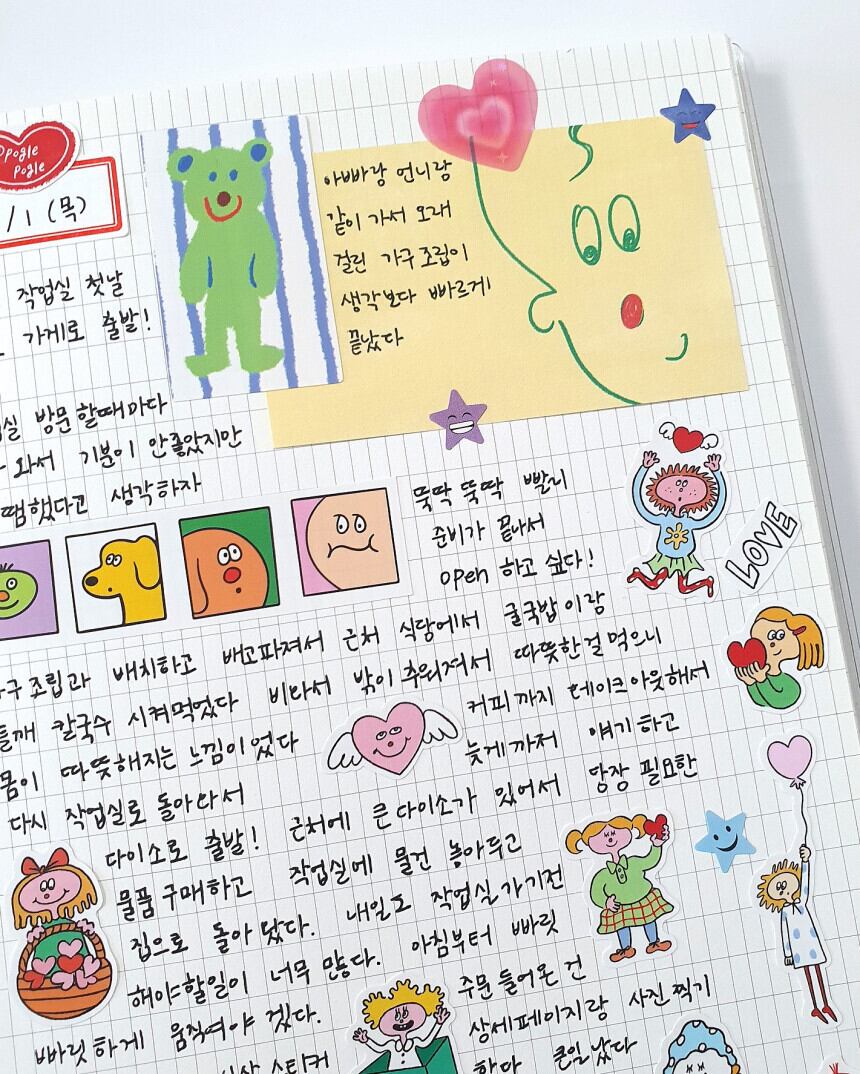 Opogle
Pogle
/1 (목)
작업실 첫날
가게로 출발!
방문할때마다
와서 기분이 안좋았지만
땜했다고 생각하자
아빠랑 언니랑
같이 가서 오래
걸린 가구 조립이
생각보다 빠르게
끝났다
뚝딱 뚝딱 빨리
준비가 끝나서
open 하고 싶다!
LOVE
구 조립과 배치하고 배고파져서 근처 식당에서 굴국밥이랑
들깨 칼국수 시켜먹었다 비와서 밖이 추워져서 따뜻한걸 먹으니
몸이 따뜻해지는 느낌이었다 커피까지 테이크아웃해서
다시 작업실로 돌아와서 늦게까지 얘기하고
다이소로 출발! 근처에 큰 다이소가 있어서 당장 필요한
물품 구매하고 작업실에 물건 놓아두고
집으로 돌아왔다. 내일도 작업실가기전
해야할일이 너무 많다. 아침부터 빠릿
빠릿하게 움직여야 겠다.
주문 들어온 건
상세페이지랑 사진찍기
스티커
한다 큰일났다